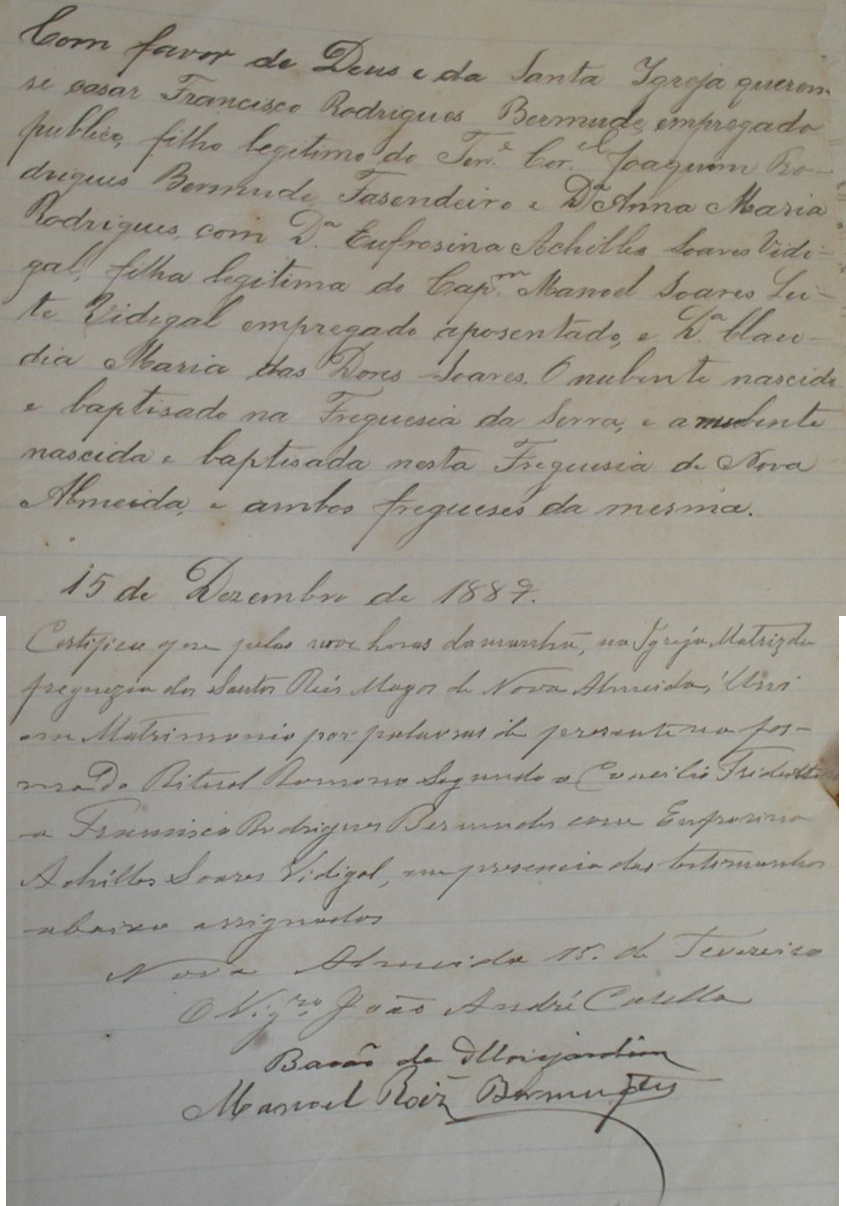 Com favor de Deus e da Santa Igreja querem
se casar Francisco Rodrigues Bermude, empregado
publico, filho legitimo do Ten.e Cor.el Joaquim Ro-
drigues Bermude, Fasendeiro e D.a Anna Maria
Rodrigues, com D.a Eufrosina Achilles Soares Vidi-
gal, filha legitima do Cap.m Manoel Soares Lei-
te Vidigal empregado aposentado, e D.a Clau-
dia Maria das Dores Soares. O nubente nascido
e baptisado na Freguesia da Serra, e a nubente
nascida e baptisada nesta Freguesia de Nova
Almeida, e ambos fregueses da mesma.
15 de Dezembro de 1889.
Certifico que pelas nove horas da manhã, na Igreja Matriz da
freguezia dos Santos Reis Magos de Nova Almeida, Uni
em Matrimonio por palavras de presente na for-
ma do Ritual Romano Segundo o Concilio Tridentino
a Francisco Rodrigues Bermudes com Eufrosina
Achilles Soares Vidigal, em presencia das testemunhas
abaixo assignados
Nova Almeida 15 de Fevereiro
O Vig.ro João André Casella
Barão de Monjardim
Manoel Roiz Bermudes